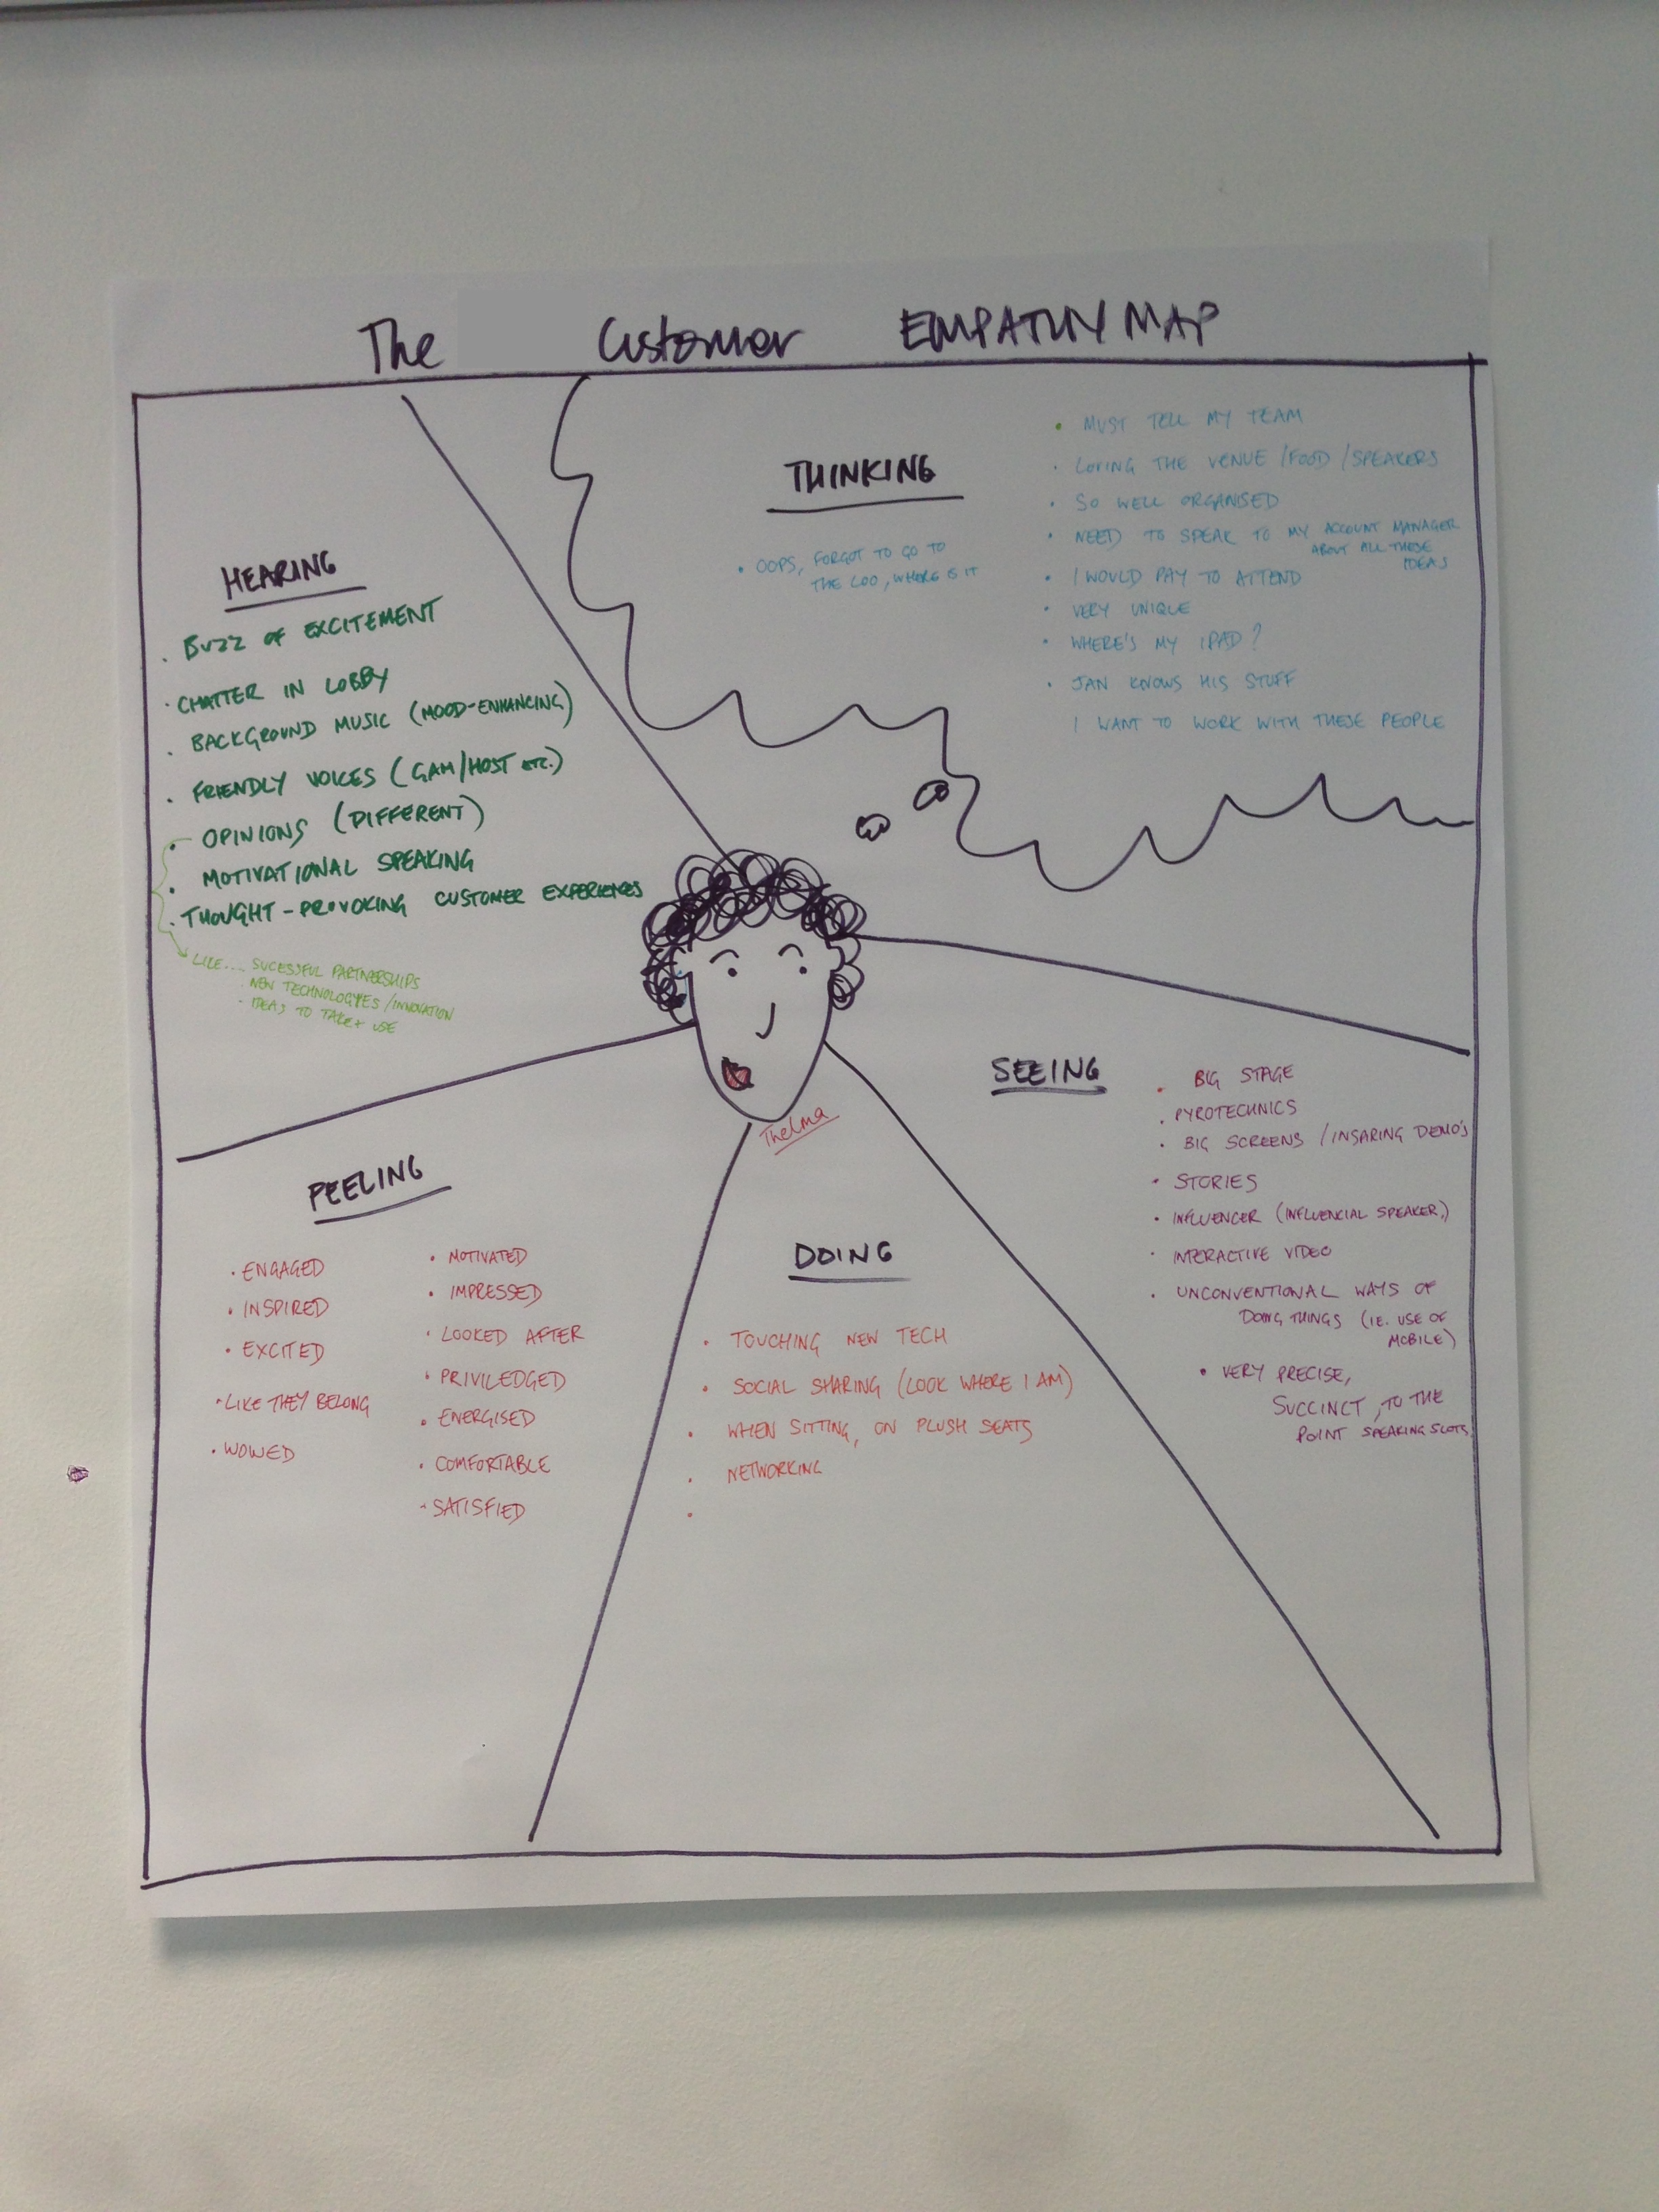 The Customer EMPATHY MAP
HEARING
. BUZZ OF EXCITEMENT
. CHATTER IN LOBBY
. BACKGROUND MUSIC (MOOD-ENHANCING)
. FRIENDLY VOICES (GAM/HOST ETC.)
. OPINIONS (DIFFERENT)
. MOTIVATIONAL SPEAKING
. THOUGHT-PROVOKING CUSTOMER EXPERIENCES
LIKE.... SUCESSFUL PARTNERSHIPS
. NEW TECHNOLOGYES/INNOVATION
- IDEAS TO TAKE + USE
THINKING
• OOPS, FORGOT TO GO TO
THE LOO, WHERE IS IT
• MUST TELL MY TEAM
• LOVING THE VENUE /FOOD /SPEAKERS
• SO WELL ORGANISED
• NEED TO SPEAK TO MY ACCOUNT MANAGER
ABOUT ALL THESE
IDEAS
• I WOULD PAY TO ATTEND
• VERY UNIQUE
• WHERE'S MY IPAD?
• JAN KNOWS HIS STUFF
I WANT TO WORK WITH THESE PEOPLE
Thelma
SEEING
. BIG STAGE
. PYROTECHNICS
. BIG SCREENS /INSPARING DEMO'S
• STORIES
• INFLUENCER (INFLUENCIAL SPEAKER,)
• INTERACTIVE VIDEO
. UNCONVENTIONAL WAYS OF
DOING THINGS (IE. USE OF
MOBILE)
• VERY PRECISE,
SUCCINCT, TO THE
POINT SPEAKING SLOTS
FEELING
. ENGAGED
• INSPIRED
• EXCITED
• LIKE THEY BELONG
• WOWED
• MOTIVATED
• IMPRESSED
• LOOKED AFTER
• PRIVILEDGED
• ENERGISED
• COMFORTABLE
• SATISFIED
DOING
• TOUCHING NEW TECH
• SOCIAL SHARING (LOOK WHERE I AM)
• WHEN SITTING, ON PLUSH SEATS
. NETWORKING